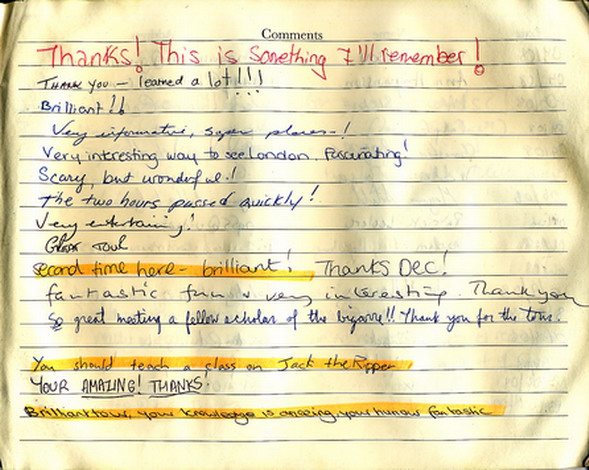 Comments
Thanks! This is something I'll remember!
THANK YOU – learned a lot!!!
Brilliant!!
Very informative, super places-!
Very interesting way to see London. Fascinating!
Scary, but wonderful!
The two hours passed quickly!
Very entertaining!
Great Tour
second time here - brilliant! Thanks Dec!
fantastic fun & very interesting. Thank you
So great meeting a fellow scholar of the bizarre!! Thank you for the tour.
You should teach a class on Jack the Ripper
YOUR AMAZING! THANKS!
Brilliant tour, your knowledge is amazing, your humour fantastic